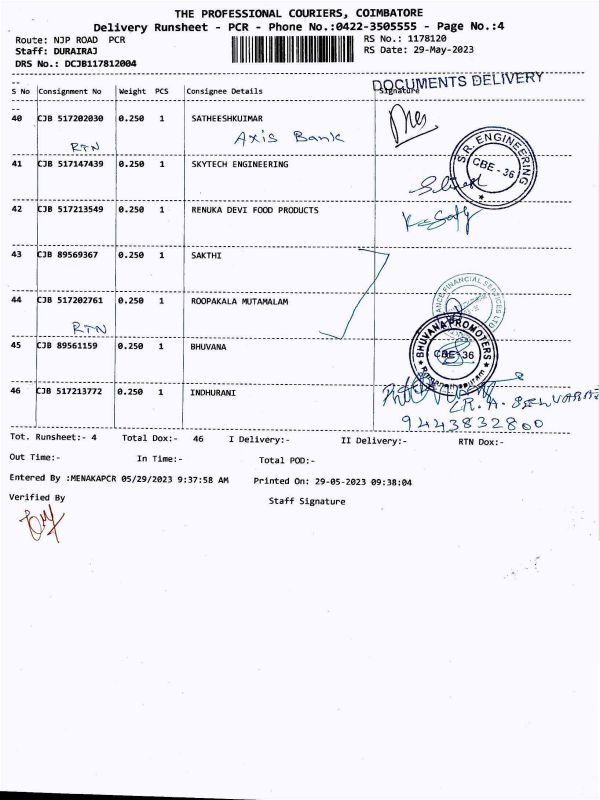 THE PROFESSIONAL COURIERS, COIMBATORE
Delivery Runsheet - PCR - Phone No.:0422-3505555 - Page No.:4
Route: NJP ROAD PCR
RS No.: 1178120
Staff: DURAIRAJ
RS Date: 29-May-2023
DRS No.: DCJB117812004
DOCUMENTS DELIVERY
S No Consignment No Weight PCS Consignee Details Signature
40 CJB 517202030 0.250 1 SATHEESHKUIMAR
RTN Axis Bank
41 CJB 517147439 0.250 1 SKYTECH ENGINEERING
S.R. ENGINEERING
CBE - 36
42 CJB 517213549 0.250 1 RENUKA DEVI FOOD PRODUCTS
43 CJB 89569367 0.250 1 SAKTHI
44 CJB 517202761 0.250 1 ROOPAKALA MUTAMALAM
FINANCIAL SERVICES LTD
RTN
45 CJB 89561159 0.250 1 BHUVANA
BHUVANA PROMOTERS
CBE - 36
Ramanathapuram
46 CJB 517213772 0.250 1 INDHURANI
R. A. SELVARAJ
9443832800
Tot. Runsheet:- 4 Total Dox:- 46 I Delivery:- II Delivery:- RTN Dox:-
Out Time:- In Time:- Total POD:-
Entered By :MENAKAPCR 05/29/2023 9:37:58 AM Printed On: 29-05-2023 09:38:04
Verified By Staff Signature